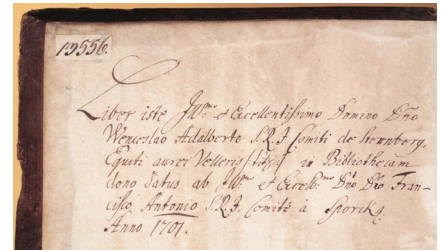 13556.
Liber iste Jll.mo et Excellentissimo Domino Dño
Wenceslao Adalberto S.R.J. Comiti de Sternberg.
Equiti aurei Velleris in Bibliothecam
dono datus ab Jll.mo et Excell.mo Dño Dño Fran-
cisco Antonio S.R.J. Comite à Sporck.
Anno 1701.